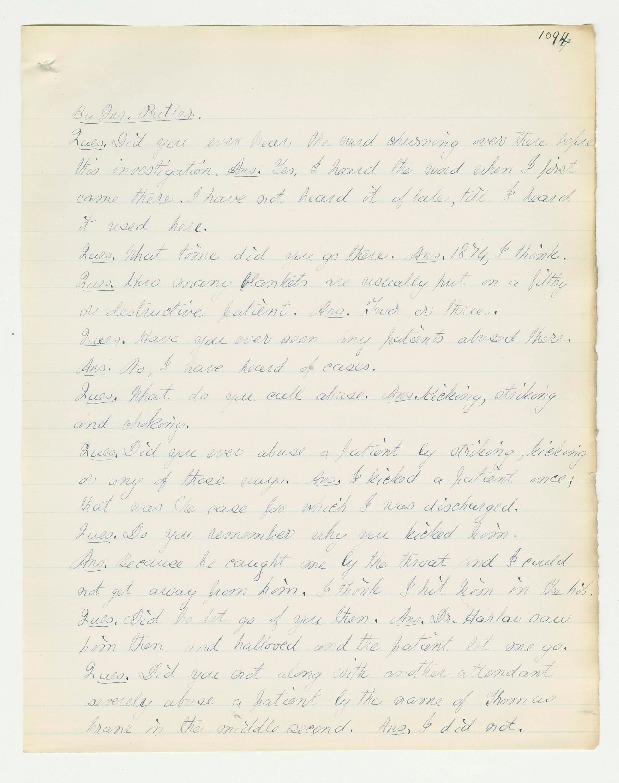 1094
By Mr. Butler.
Ques. Did you ever hear the word churning over there before
this investigation. Ans. Yes, I heard the word when I first
came there. I have not heard it of late, till I heard
it used here.
Ques. What time did you go there. Ans. 1874, I think.
Ques. How many blankets are usually put on a filthy
or destructive patient. Ans. Two or three.
Ques. Have you ever seen any patients abused there.
Ans. No, I have heard of cases.
Ques. What do you call abuse. Ans. Kicking, striking
and choking.
Ques. Did you ever abuse a patient by striking, kicking
or any of those ways. Ans. I kicked a patient once;
that was the case for which I was discharged.
Ques. Do you remember why you kicked him.
Ans. Because he caught me by the throat and I could
not get away from him. I think I hit him in the hip.
Ques. Did he let go of you then. Ans. Dr. Harlow saw
him then and hallooed and the patient let me go.
Ques. Did you not along with another attendant
severely abuse a patient by the name of Thomas
in the middle second. Ans. I did not.